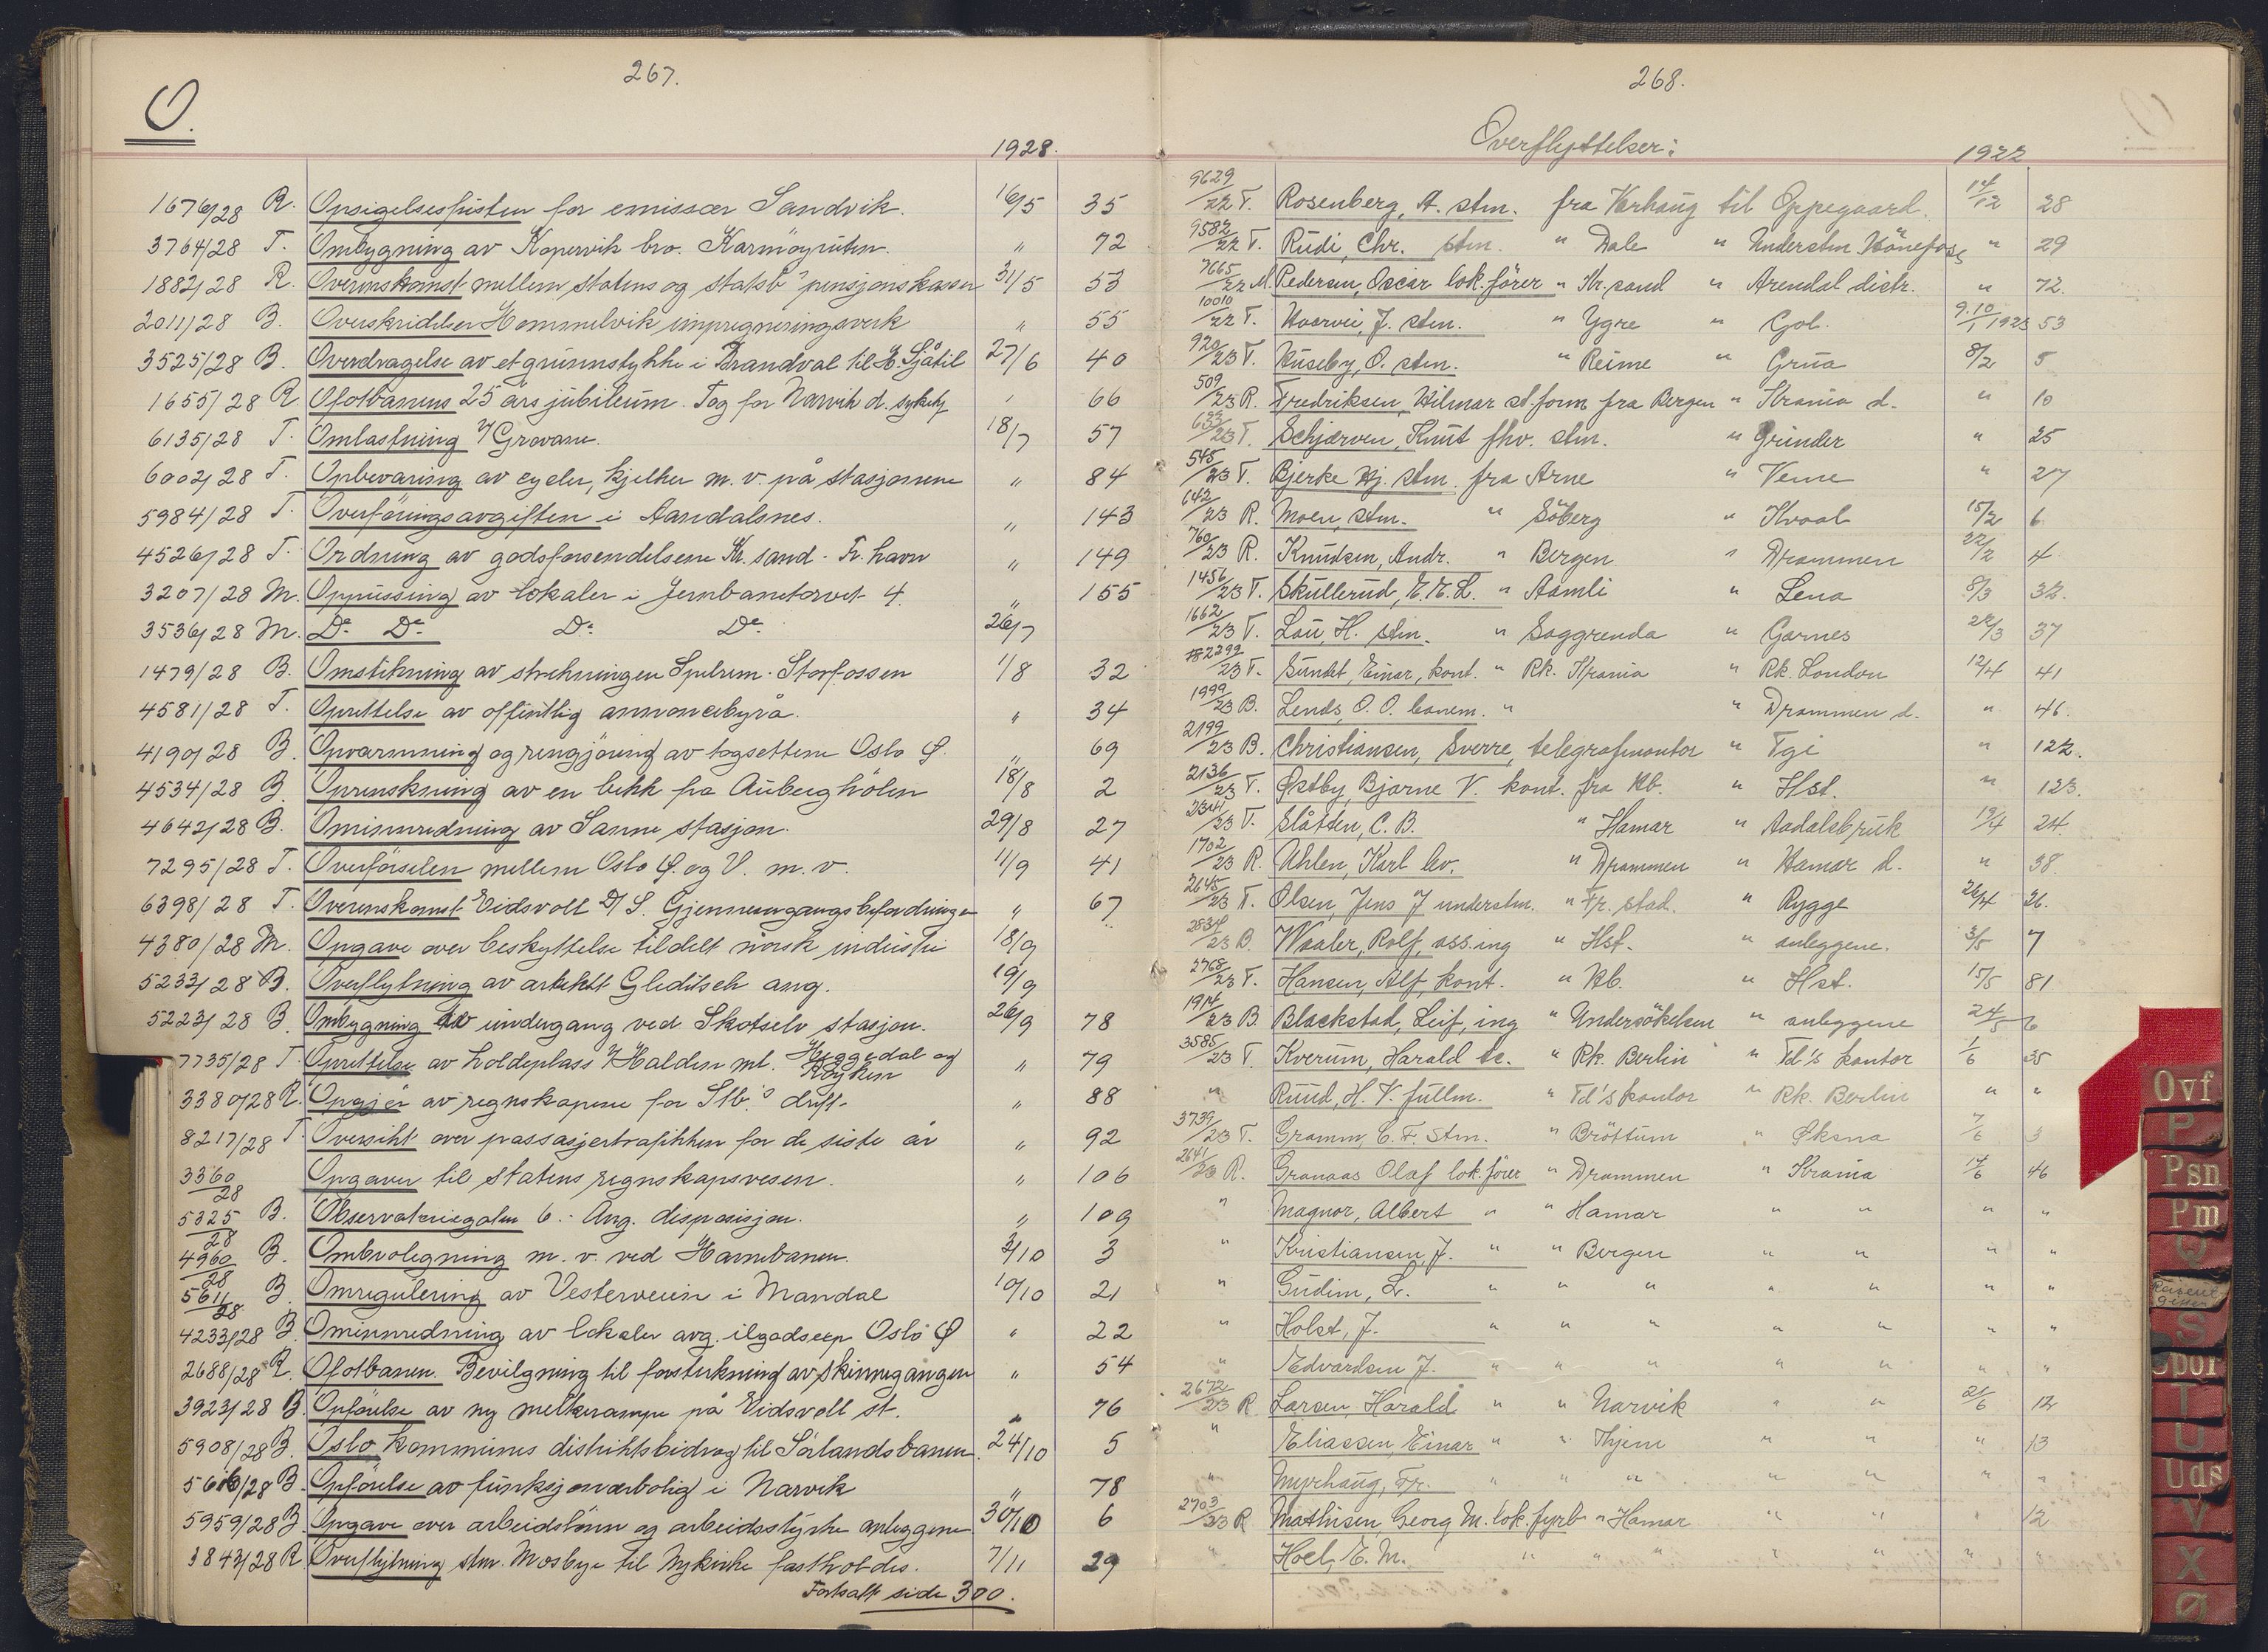 267.
O.
1928.
1676/28 R. Opsigelsesfristen for emissær Sandvik. 16/5 35
3764/28 T. Ombygning av Kopervik bro. Karmöyruten. " 72
1882/28 R. Overenskomst mellem statens og statsb. pensjonskasser 31/5 53
2011/28 B. Overskridelser Hommelvik impregneringsverk " 55
3525/28 B. Overdragelse av et grunnstykke i Brandval til E. Sjåtil 27/6 40
1655/28 R. Ofotbanens 25 års jubileum. Tog for Narvik d. " 66
6135/28 T. Omlastning i/ Grovane. 18/7 57
6002/28 T. Opbevaring av cycler, kjelker m. v. på stasjonene " 84
5984/28 T. Overföringsavgiften i Aandalsnes. " 143
4526/28 T. Ordning av godsforsendelsene Kr. sand - Fr. havn " 149
3207/28 M. Oppussing av lokaler i Jernbanetorvet 4. " 155
3536/28 M. Do Do Do Do 26/7
1479/28 B. Omstikning av strekningen Spelrem - Storfossen 1/8 32
4581/28 T. Oprettelse av offentlig annoncebyrå. " 34
4190/28 B. Opvarmning og rengjöring av togsettene Oslo Ø. " 69
4534/28 B. Oprenskning av en bekk fra Auberghölen 18/8 2
4642/28 B. Ominnredning av Sanne stasjon. 29/8 27
7295/28 T. Overförselen mellem Oslo Ø. og V. m. v. 11/9 41
6398/28 T. Overenskomst Eidsvoll D/S. Gjennemgangsbefordringen " 67
4380/28 M. Opgave over beskyttelse tildelt norsk industri 18/9
5233/28 B. Overflytning av arkitekt Gleditsch ang. 19/9
5223/28 B. Ombygning av undergang ved Skotselv stasjon. 26/9 78
7735/28 T. Oprettelse av holdeplass i/ Halden ml. Heggedal og Röyken " 79
3380/28 R. Opgjör av regnskapene for Stb.s drift. " 88
8217/28 T. Oversikt over passasjertrafikken for de siste år " 92
3360/28 Opgaver til statens regnskapsvesen. " 106
5325/28 B. Observatoriegaten 6. - Ang. disposisjon. " 109
4960/28 B. Ombrolegning m. v. ved Havnebanen. 3/10 3
5611/28 B. Omregulering av Vesterveien i Mandal 10/10 21
4233/28 B. Ominnredning av lokaler avg. ilgodsexp. Oslo Ø " 22
2688/28 R. Ofotbanen. Bevilgning til forsterkning av skinnegangen " 54
3923/28 B. Opförelse av ny melkerampe på Eidsvoll st. " 76
5908/28 B. Oslo kommunes distriktsbidrag til Sörlandsbanen. 24/10 5
5616/28 B. Opförelse av funksjonærbolig i Narvik " 78
5959/28 B. Opgave over arbeidslönn og arbeidsstyrke anleggene 30/10 6
3843/28 R. Overflytning stm. Mosbye til Nykirke fastholdes. 7/11 29
Fortsatt side 300.
268.
Overflyttelser:
1922
9629/22 T. Rosenberg, A. stm. fra Varhaug til Oppegaard. 14/12 28
9582/22 T. Rudi, Chr. stm. " Dale " Understm. Hönefoss " 29
7665/22 M. Pedersen, Oscar lok.förer " Kr.sand " Arendal distr. " 72.
10010/22 T. J. stm. " Ygre " Gol. 9.10/1 1923 53
920/23 T. Huseby, O. stm. " Reime " Grua 8/2 5
509/23 R. Fredriksen, Hilmar st.form fra Bergen " Krania d. " 10
633/23 T. Schjerven, Knut fhv. stm. " Grunder " 25
545/23 T. Bjerke Hj. stm. fra Arne " Verne " 27
642/23 R. Moen, stm. " Söberg " Kvaal 15/2 6.
760/23 R. Knudsen, Andr. " Bergen " Drammen 22/2 4
1456/23 T. Skullerud, E. E. L. " Aamli " Lena 8/3 32.
1662/23 T. Lau, H. stm. " Saggrenda " Garnes 22/3 37
2299/23 T. Sundt, Einar, kont. " Rk. Krania " Rk. London 12/4 41
1999/23 B. Lends, O. O. banem. " " Drammen d. " 46.
2199/23 B. Christiansen, Sverre, telegrafmontör " Tgi " 122.
2136/23 T. Østby, Bjarne V. kont. fra Kb. " Hst. " 123.
2341/23 T. Slåtten, C. B. " Hamar " Aadalsbruk 19/4 24.
1702/23 R. Uhlen, Karl bv. " Drammen " Hamar d. " 38.
2645/23 T. Olsen, Jens J understm. " Fr. stad. " Rygge 26/4 26.
2834/23 B. Waaler, Rolf, ass.ing " Hst. " anleggene. 3/5 7
2768/23 T. Hansen, Alf, kont. " Kb. " Hst. 15/5 81
1914/23 B. Blackstad, Leif, ing " Undersökelsen " anleggene 24/5 6
3585/23 T. Kverum, Harald " Rk. Berlin " Td's kontor 1/6 35
" Ruud, H. V. fullm. " Td's kontor " Rk. Berlin " "
3739/23 T. Gramm, C. F. Stm. " Bröttum " Øksna 7/6 3
2641/23 R. Granaas Olaf lok.förer " Drammen " Krania 14/6 46
" Magnor, Albert " " Hamar " " " "
" Kristiansen, J. " " Bergen " " " "
" Gudim, L. " " " " " " "
" Holst, J. " " " " " " "
" Edvardsen J. " " " " " " "
2672/23 R Larsen, Harald " " Narvik " " 21/6 12
" Eliassen, Einar " " Thjem " " " 13
" Myrhaug, Fr. " " " " " " "
2703/23 R Mathisen, Georg M. lok.fyrb " Hamar " " " 12
" Hoel, E. M. " " " " " " "
Ovf
P
Psn
Pm
Q
S
Spor
T
U
Uds
V
X
Ø